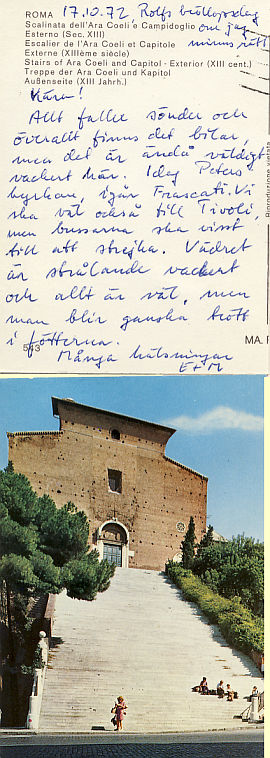 17.10.72, Rolfs bröllopsdag
om jag
minns rätt
ROMA
Scalinata dell'Ara Coeli e Campidoglio
Esterno (Sec. XIII)
Escalier de l'Ara Coeli et Capitole
Externe (XIIIème siècle)
Stairs of Ara Coeli and Capitol - Exterior (XIII cent.)
Treppe der Ara Coeli und Kapitol
Außenseite (XIII Jahrh.)
Kära!
Allt faller sönder och
överallt finns det bilar,
men det är ändå väldigt
vackert här. Idag Peters-
kyrkan, igår Frascati. Vi
ska väl också till Tivoli,
men bussarna ska visst
till att strejka. Vädret
är strålande vackert
och allt är väl, men
man blir ganska trött
i fötterna.
Många hälsningar
E+M
543
MA.
Riproduzione vietata